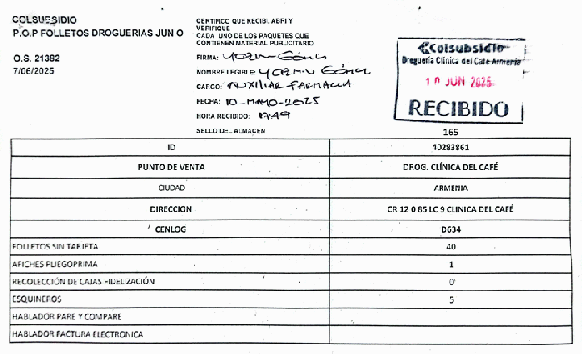 COLSUBSIDIO
P.O.P FOLLETOS DROGUERIAS JUNIO
O.S. 21382
7/06/2025
CERTIFICO QUE RECIBI, ABRI Y
VERIFIQUE
CADA UNO DE LOS PAQUETES QUE
CONTIENEN MATERIAL PUBLICITARIO
FIRMA:
NOMBRE LEGIBLE: YERMIN GÓMEZ
CARGO: AUXILIAR FARMACIA
FECHA: 10-MAYO-2025
HORA RECIBIDO: 17:49
SELLO DEL ALMACEN
Colsubsidio
Droguería Clínica del Café Armenia
10 JUN 2025
RECIBIDO
165
ID 10283861
PUNTO DE VENTA DROG. CLÍNICA DEL CAFÉ
CIUDAD ARMENIA
DIRECCION CR 12 0 85 LC 9 CLINICA DEL CAFÉ
CENLOG D634
FOLLETOS SIN TARJETA 40
AFICHES PLIEGO PRIMA 1
RECOLECCIÓN DE CAJAS FIDELIZACIÓN 0
ESQUINEROS 5
HABLADOR PARE Y COMPARE
HABLADOR FACTURA ELECTRONICA